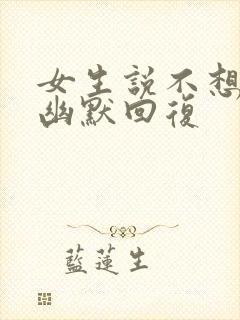 女生説不想
幽默回復
藍蓮生